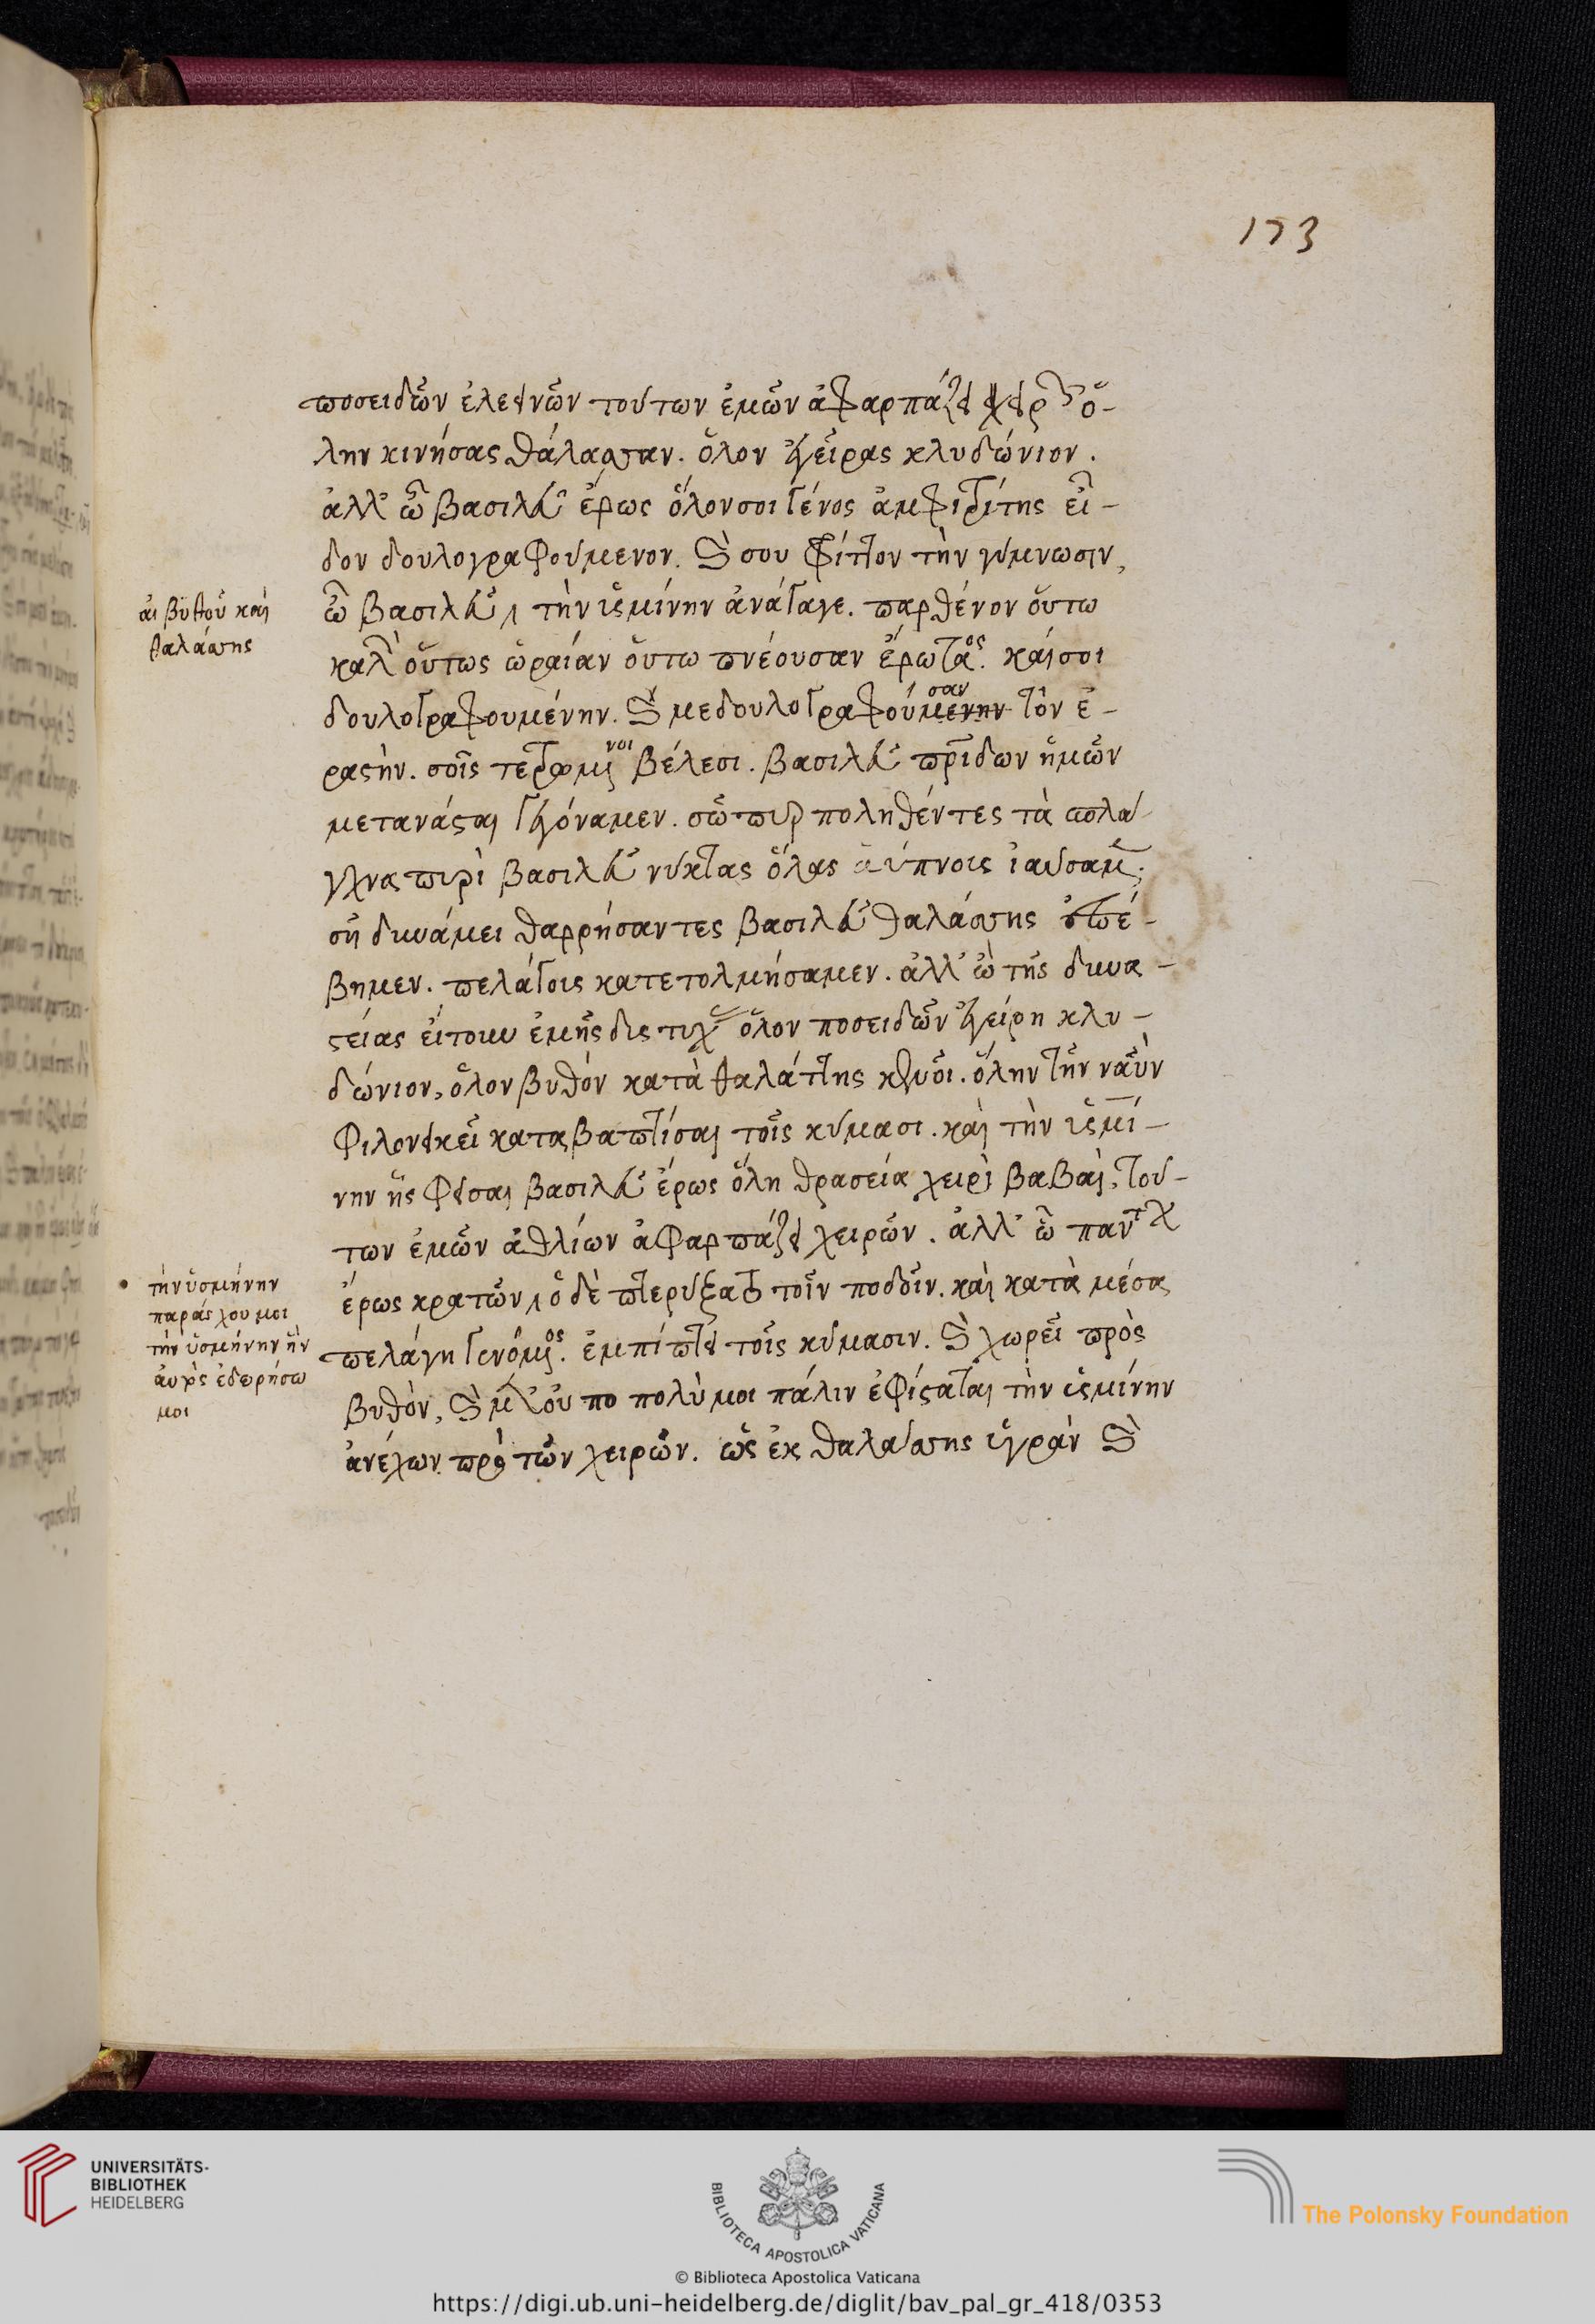 173
ποσειδῶν ἐλεεινῶν τούτων ἐμῶν ἀφαρπάζει χειρῶν ὅ-
λην κινήσας θάλασσαν. ὅλον ἐγείρας κλυδώνιον.
ἀλλ' ὦ βασιλεῦ ἔρως ὅλον σοι γένος ἀμφιτρίτης εἶ-
δον δουλογραφούμενον. καὶ σου φρίττον τὴν γύμνωσιν,
ὦ βασιλεῦ, τὴν ὑσμίνην ἀνάγαγε. παρθένον οὕτω
καλὴν οὕτως ὡραίαν οὕτω πνέουσαν ἔρωτος. καί σοι
δουλογραφουμένην. καὶ με δουλογραφούμενην σαν τὸν ἐ-
ραστὴν. σοῖς τετρωμένοι βέλεσι. βασιλεῦ πατρίδων ἡμῶν
μετανάσται γεγόναμεν. σῷ πυρποληθέντες τὰ σπλά-
γχνα πυρὶ βασιλεῦ νύκτας ὅλας ἀύπνοις ἰαύσαμεν.
σῇ δυνάμει θαρρήσαντες βασιλεῦ θαλάσσης ἐπέ-
βημεν. πελάγους κατετολμήσαμεν. ἀλλ' ὦ τῆς δυνα-
στείας εἴτουν ἐμῆς δυστυχίας ὅλον ποσειδῶν ἐγείρη κλυ-
δώνιον, ὅλον βυθόν κατὰ θαλάττης κινεῖ. ὅλην τὴν ναῦν
φιλονεικεῖ καταβαπτίσαι τοῖς κύμασι. καὶ τὴν ὑσμί-
νην ἧς φεῖσαι βασιλεῦ ἔρως ὅλη θρασεία χειρὶ βαβαὶ, τού-
των ἐμῶν ἀθλίων ἀφαρπάζει χειρῶν. ἀλλ' ὦ πανταχοῦ
ἔρως κρατῶν, ὁ δὲ πτερύξατο τοῖν ποδοῖν. καὶ κατὰ μέσα
πελάγη γενόμενος. ἐμπίπτει τοῖς κύμασιν. καὶ χωρεῖ πρὸς
βυθὸν, καὶ μετ' οὐ πο πολὺ μοι πάλιν ἐφίσταται τὴν ὑσμίνην
ἀνέχων πρὸ τῶν χειρῶν. ὡς ἐκ θαλάσσης ὑγρὰν καὶ
ἀι βυθοῦ καὶ
θαλάσσης
τὴν ὑσμήνην
παράσχου μοι
τὴν ὑσμήνην ἣν
ἀυτὸς ἐδωρήσω
μοι
UNIVERSITÄTS-
BIBLIOTHEK
HEIDELBERG
BIBLIOTECA APOSTOLICA VATICANA
© Biblioteca Apostolica Vaticana
The Polonsky Foundation
https://digi.ub.uni-heidelberg.de/diglit/bav_pal_gr_418/0353